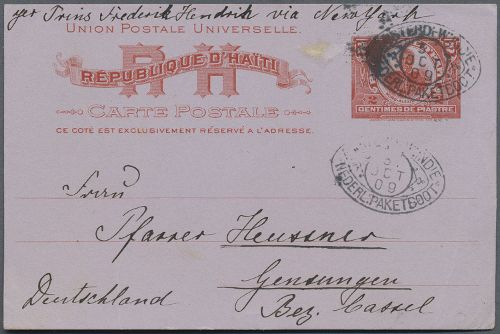 per Prins Frederik Hendrik via New York
UNION POSTALE UNIVERSELLE.
RH
RÉPUBLIQUE D'HAÏTI
CARTE POSTALE
CE COTÉ EST EXCLUSIVEMENT RÉSERVÉ A L'ADRESSE.
2
CENTIMES DE PIASTRE
OCT
09
NEDERL:PAKETBOOT
OCT
09
NEDERL:PAKETBOOT
Frau
Pfarrer Heussner
Gensungen
Deutschland Bez. Cassel